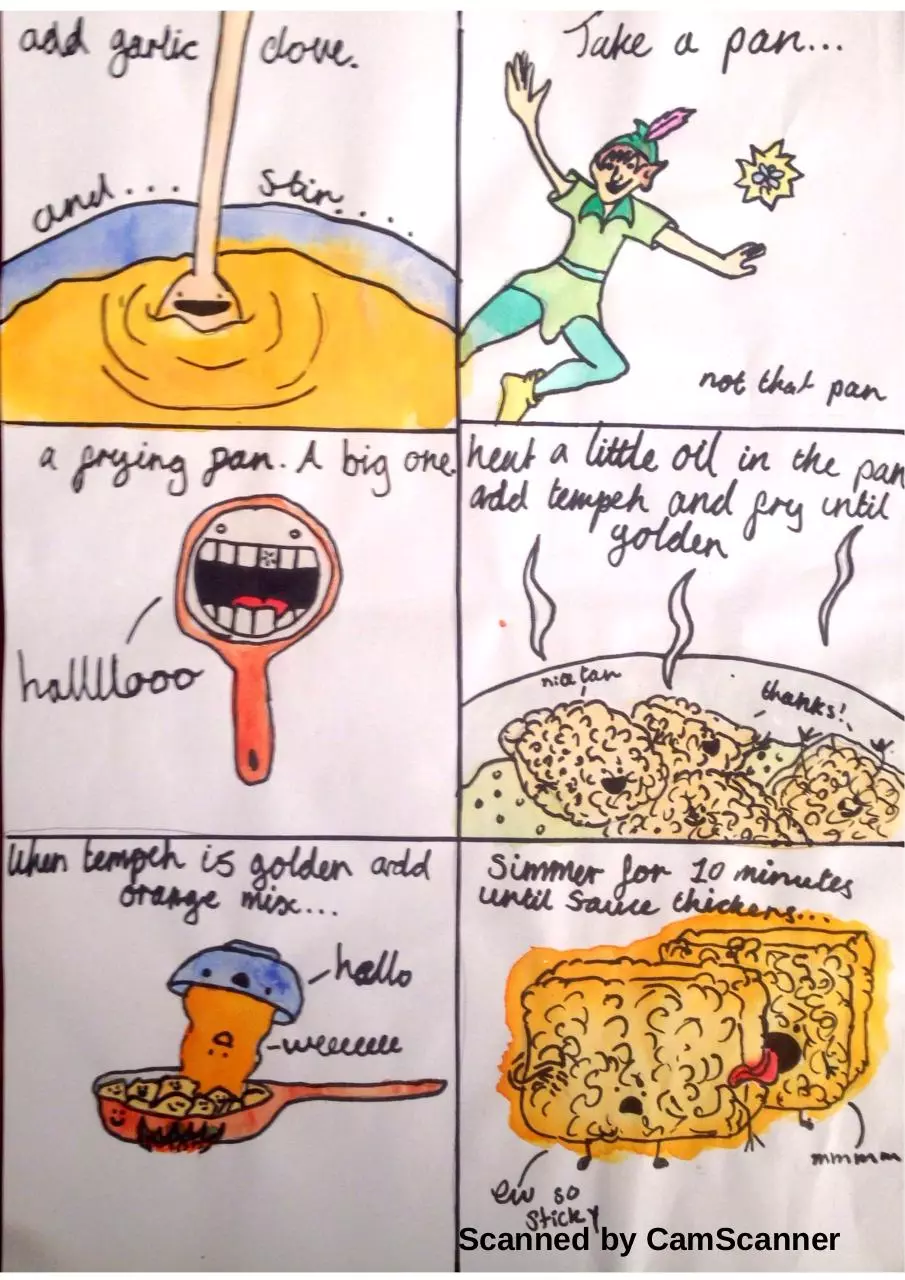 add garlic clove.
and... stir...
Take a pan...
not that pan
a frying pan. A big one
hallllooo
heat a little oil in the pan
add tempeh and fry until
golden
nice tan
thanks!
When tempeh is golden add
orange mix...
hallo
weeeeee
Simmer for 10 minutes
until sauce thickens...
mmmmm
ew so
sticky
Scanned by CamScanner